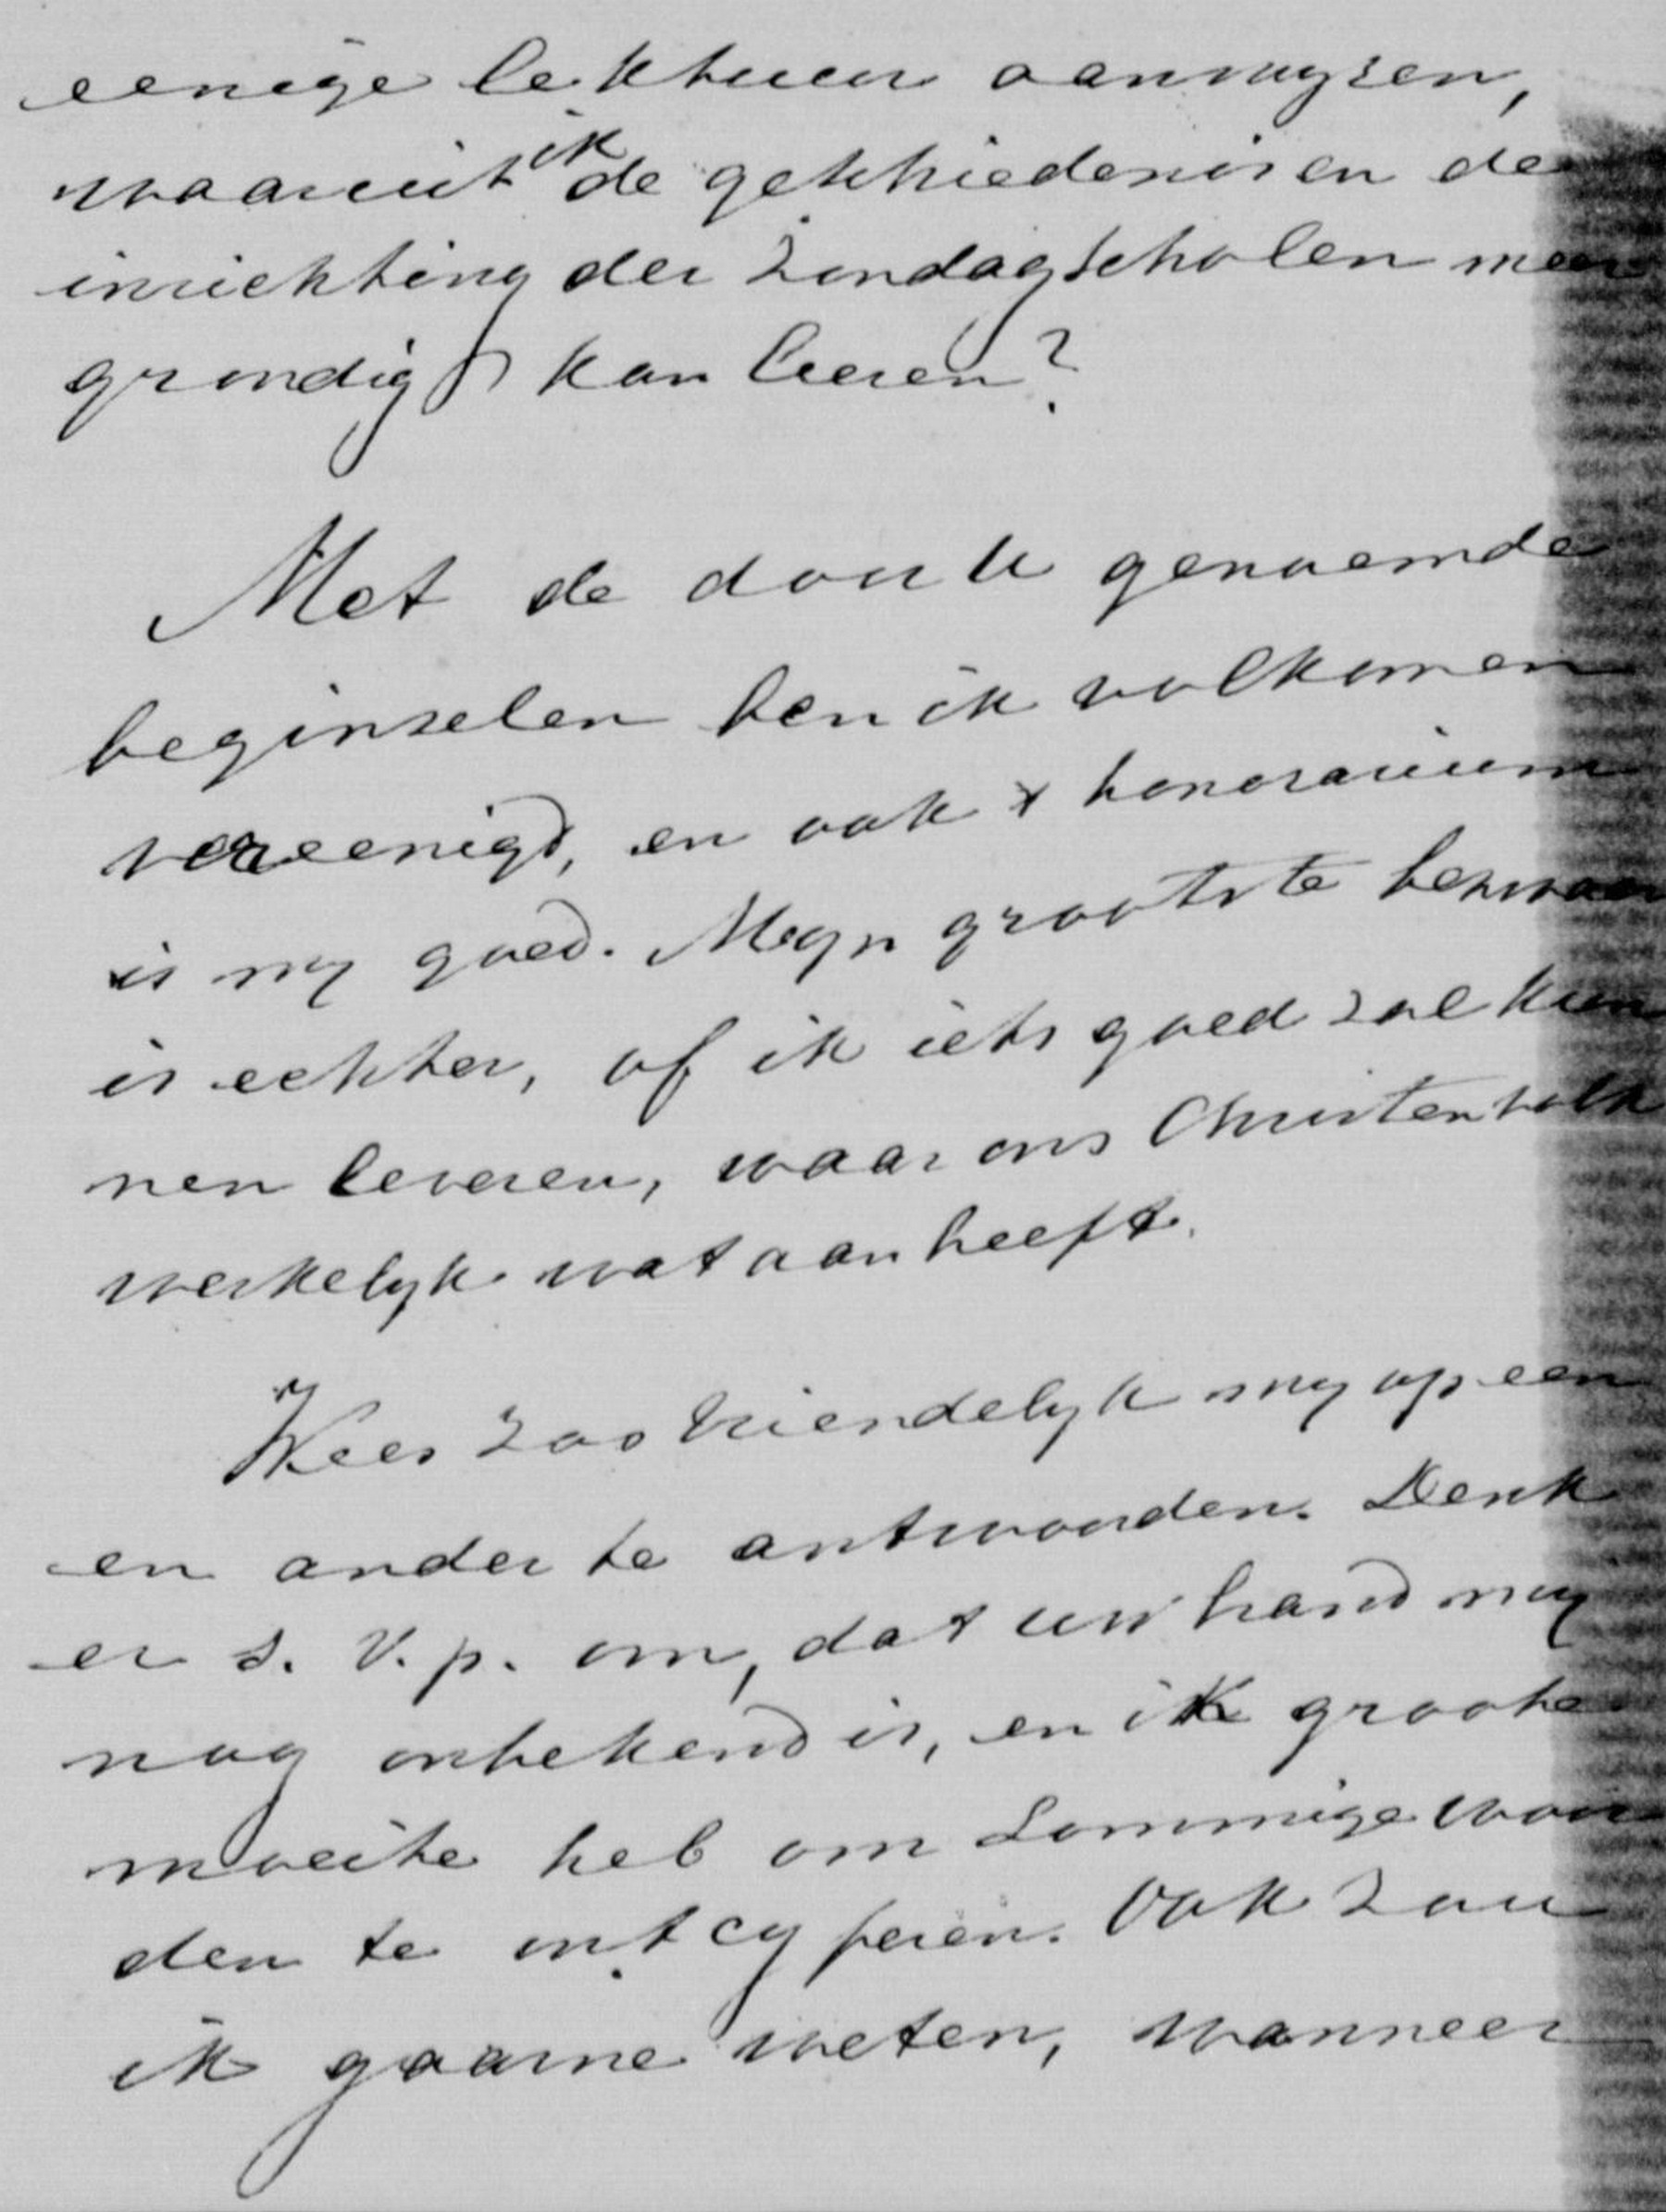 eenige lektuur aanwyzen,
waaruit ik de geschiedenis en de
inrichting der Zondagscholen meer
grondig kan leeren?
Met de door U genoemde
beginselen ben ik volkomen
vereenigd, en ook 't honorarium
is my goed. Myn grootste bezwaar
is echter, of ik iets goed zal kun
nen leveren, waar ons Christenvolk
werkelyk wat aan heeft.
Wees zoo vriendelyk my op een
en ander te antwoorden. Denk
er s. v. p. om, dat uw hand my
nog onbekend is, en ik groote
moeite heb om sommige woor
den te ontcyferen. Ook zou
ik gaarne weten, wanneer